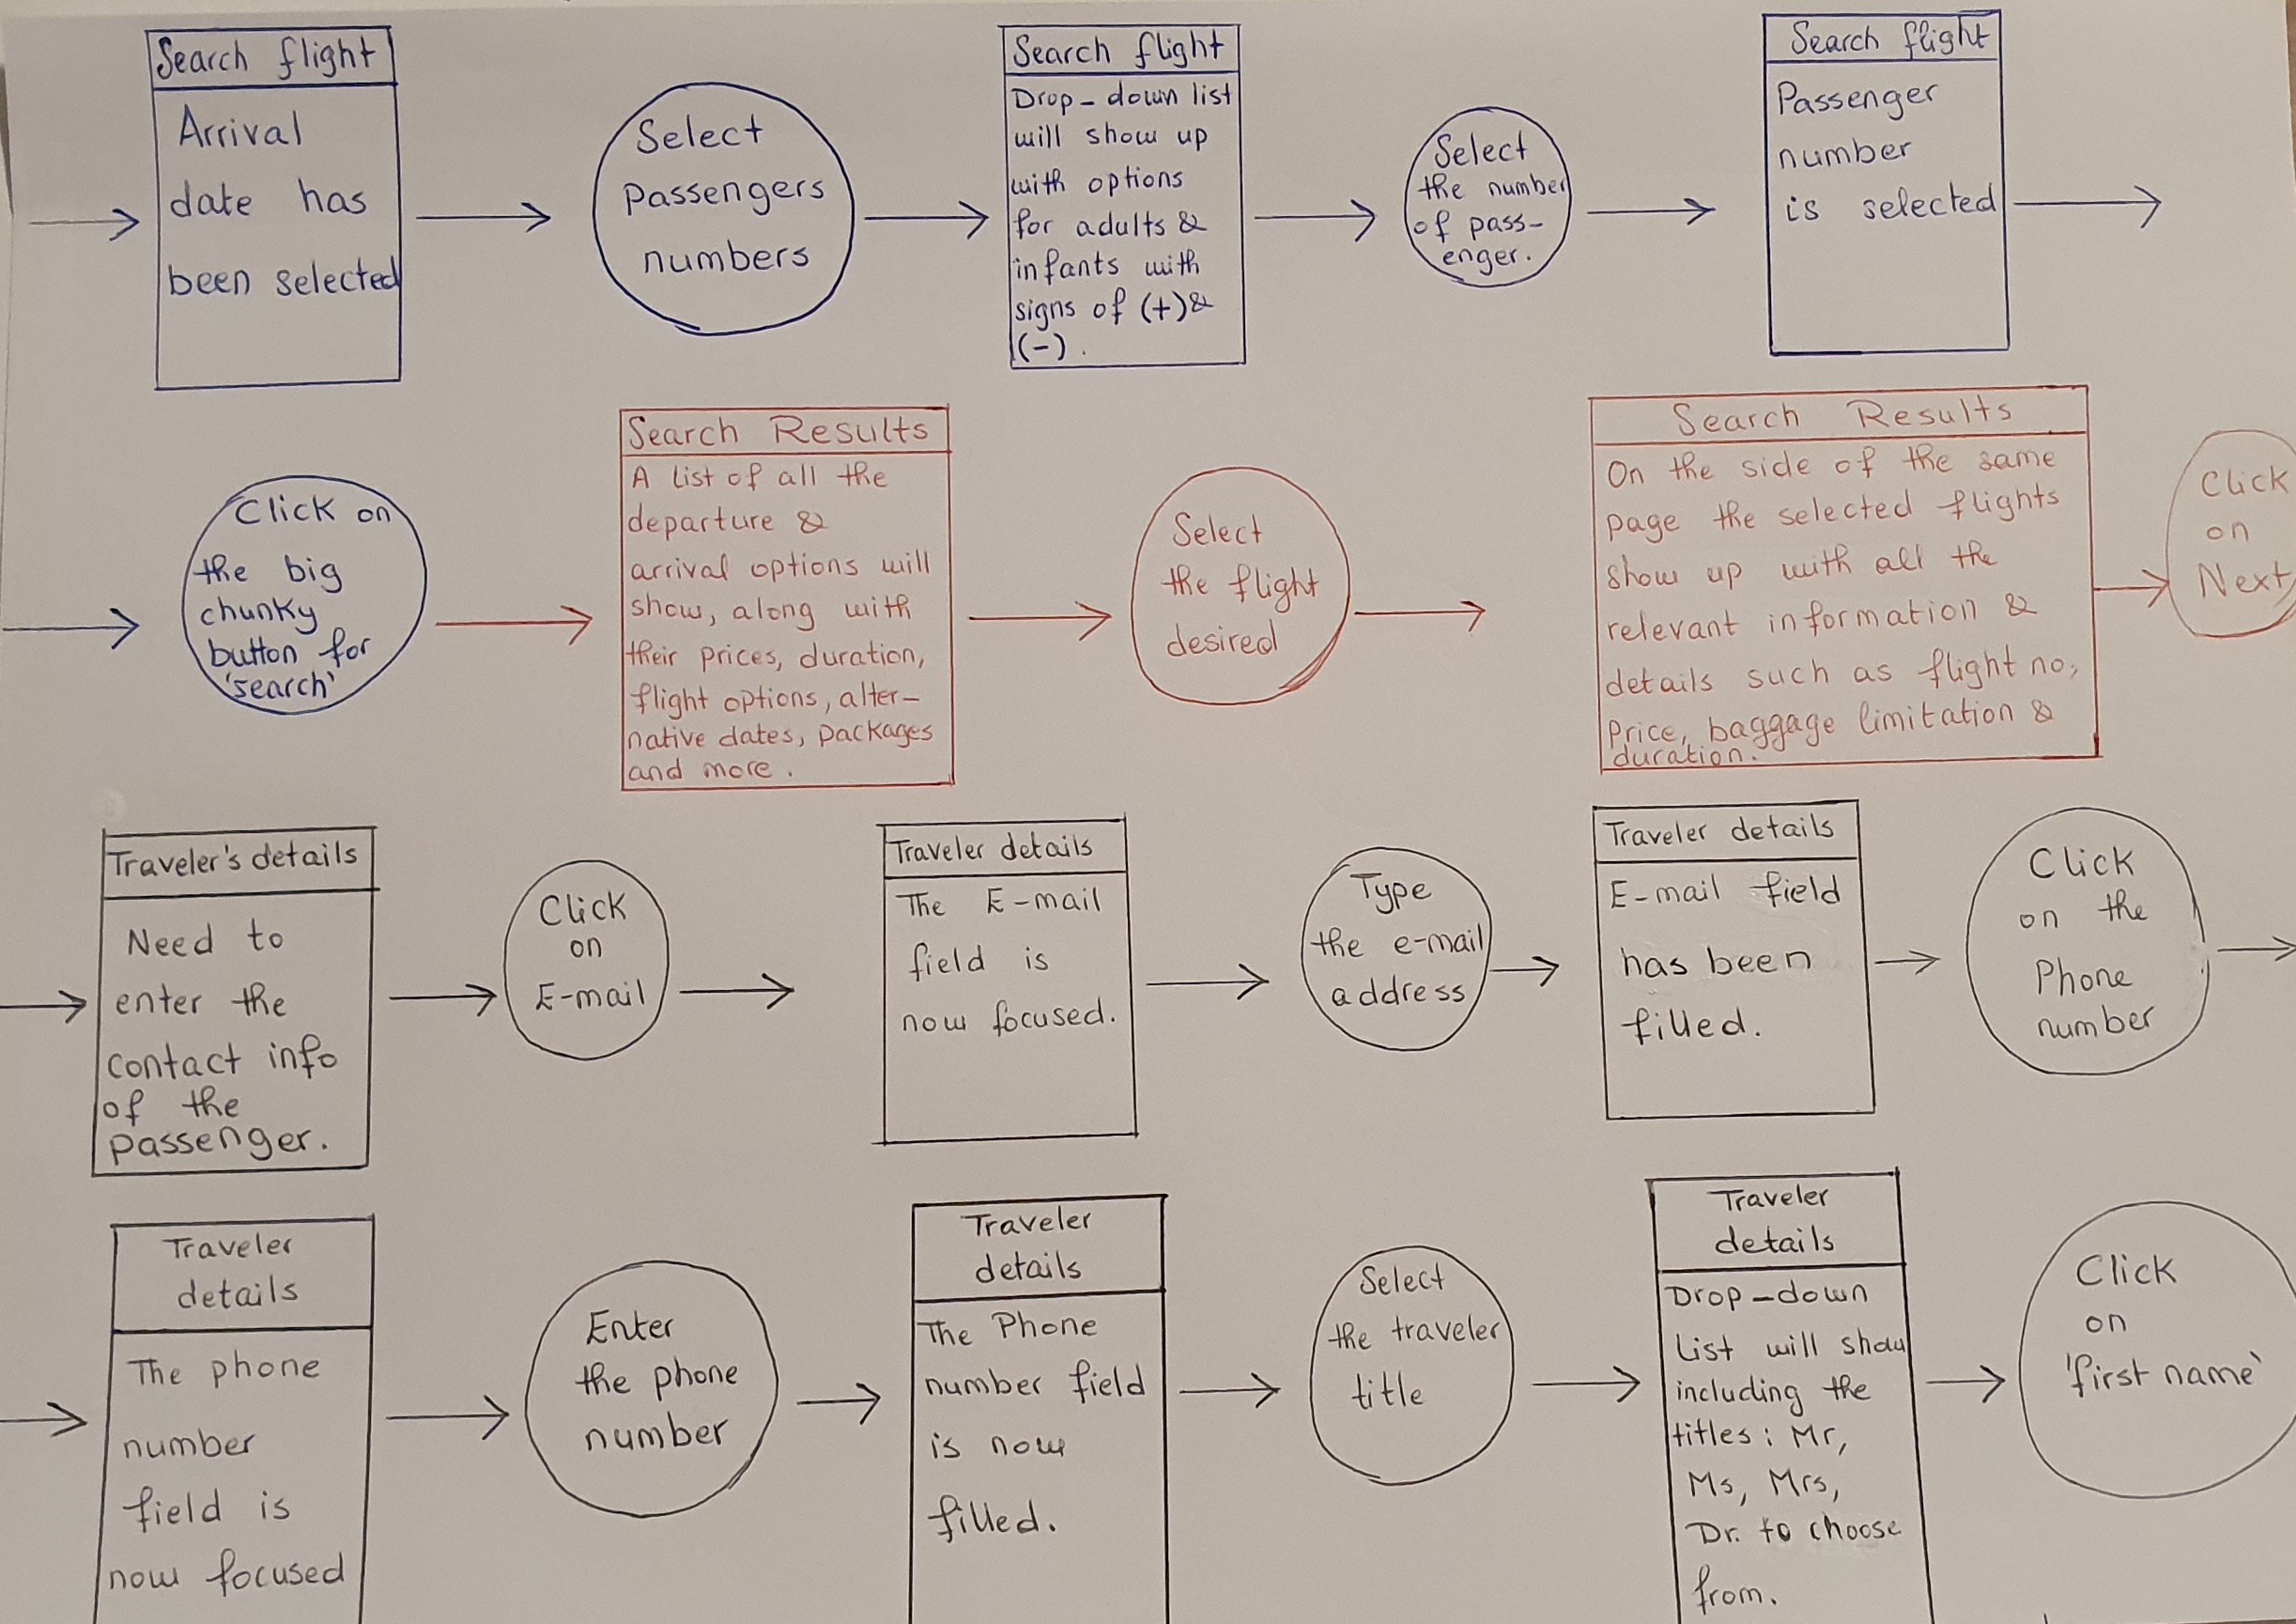 Search flight
Arrival
date has
been selected
Select
passengers
numbers
Search flight
Drop-down list
will show up
with options
for adults &
infants with
signs of (+)&
(-).
Select
the number
of pass-
enger.
Search flight
Passenger
number
is selected
Click on
the big
chunky
button for
'search'
Search Results
A list of all the
departure &
arrival options will
show, along with
their prices, duration,
flight options, alter-
native dates, packages
and more.
Select
the flight
desired
Search Results
On the side of the same
page the selected flights
show up with all the
relevant information &
details such as flight no,
Price, baggage limitation &
duration.
Click
on
Next
Traveler's details
Need to
enter the
contact info
of the
passenger.
Click
on
E-mail
Traveler details
The E-mail
field is
now focused.
Type
the e-mail
address
Traveler details
E-mail field
has been
filled.
Click
on the
Phone
number
Traveler
details
The phone
number
field is
now focused
Enter
the phone
number
Traveler
details
The Phone
number field
is now
filled.
Select
the traveler
title
Traveler
details
Drop-down
List will show
including the
titles: Mr,
Ms, Mrs,
Dr. to choose
from.
Click
on
'first name'